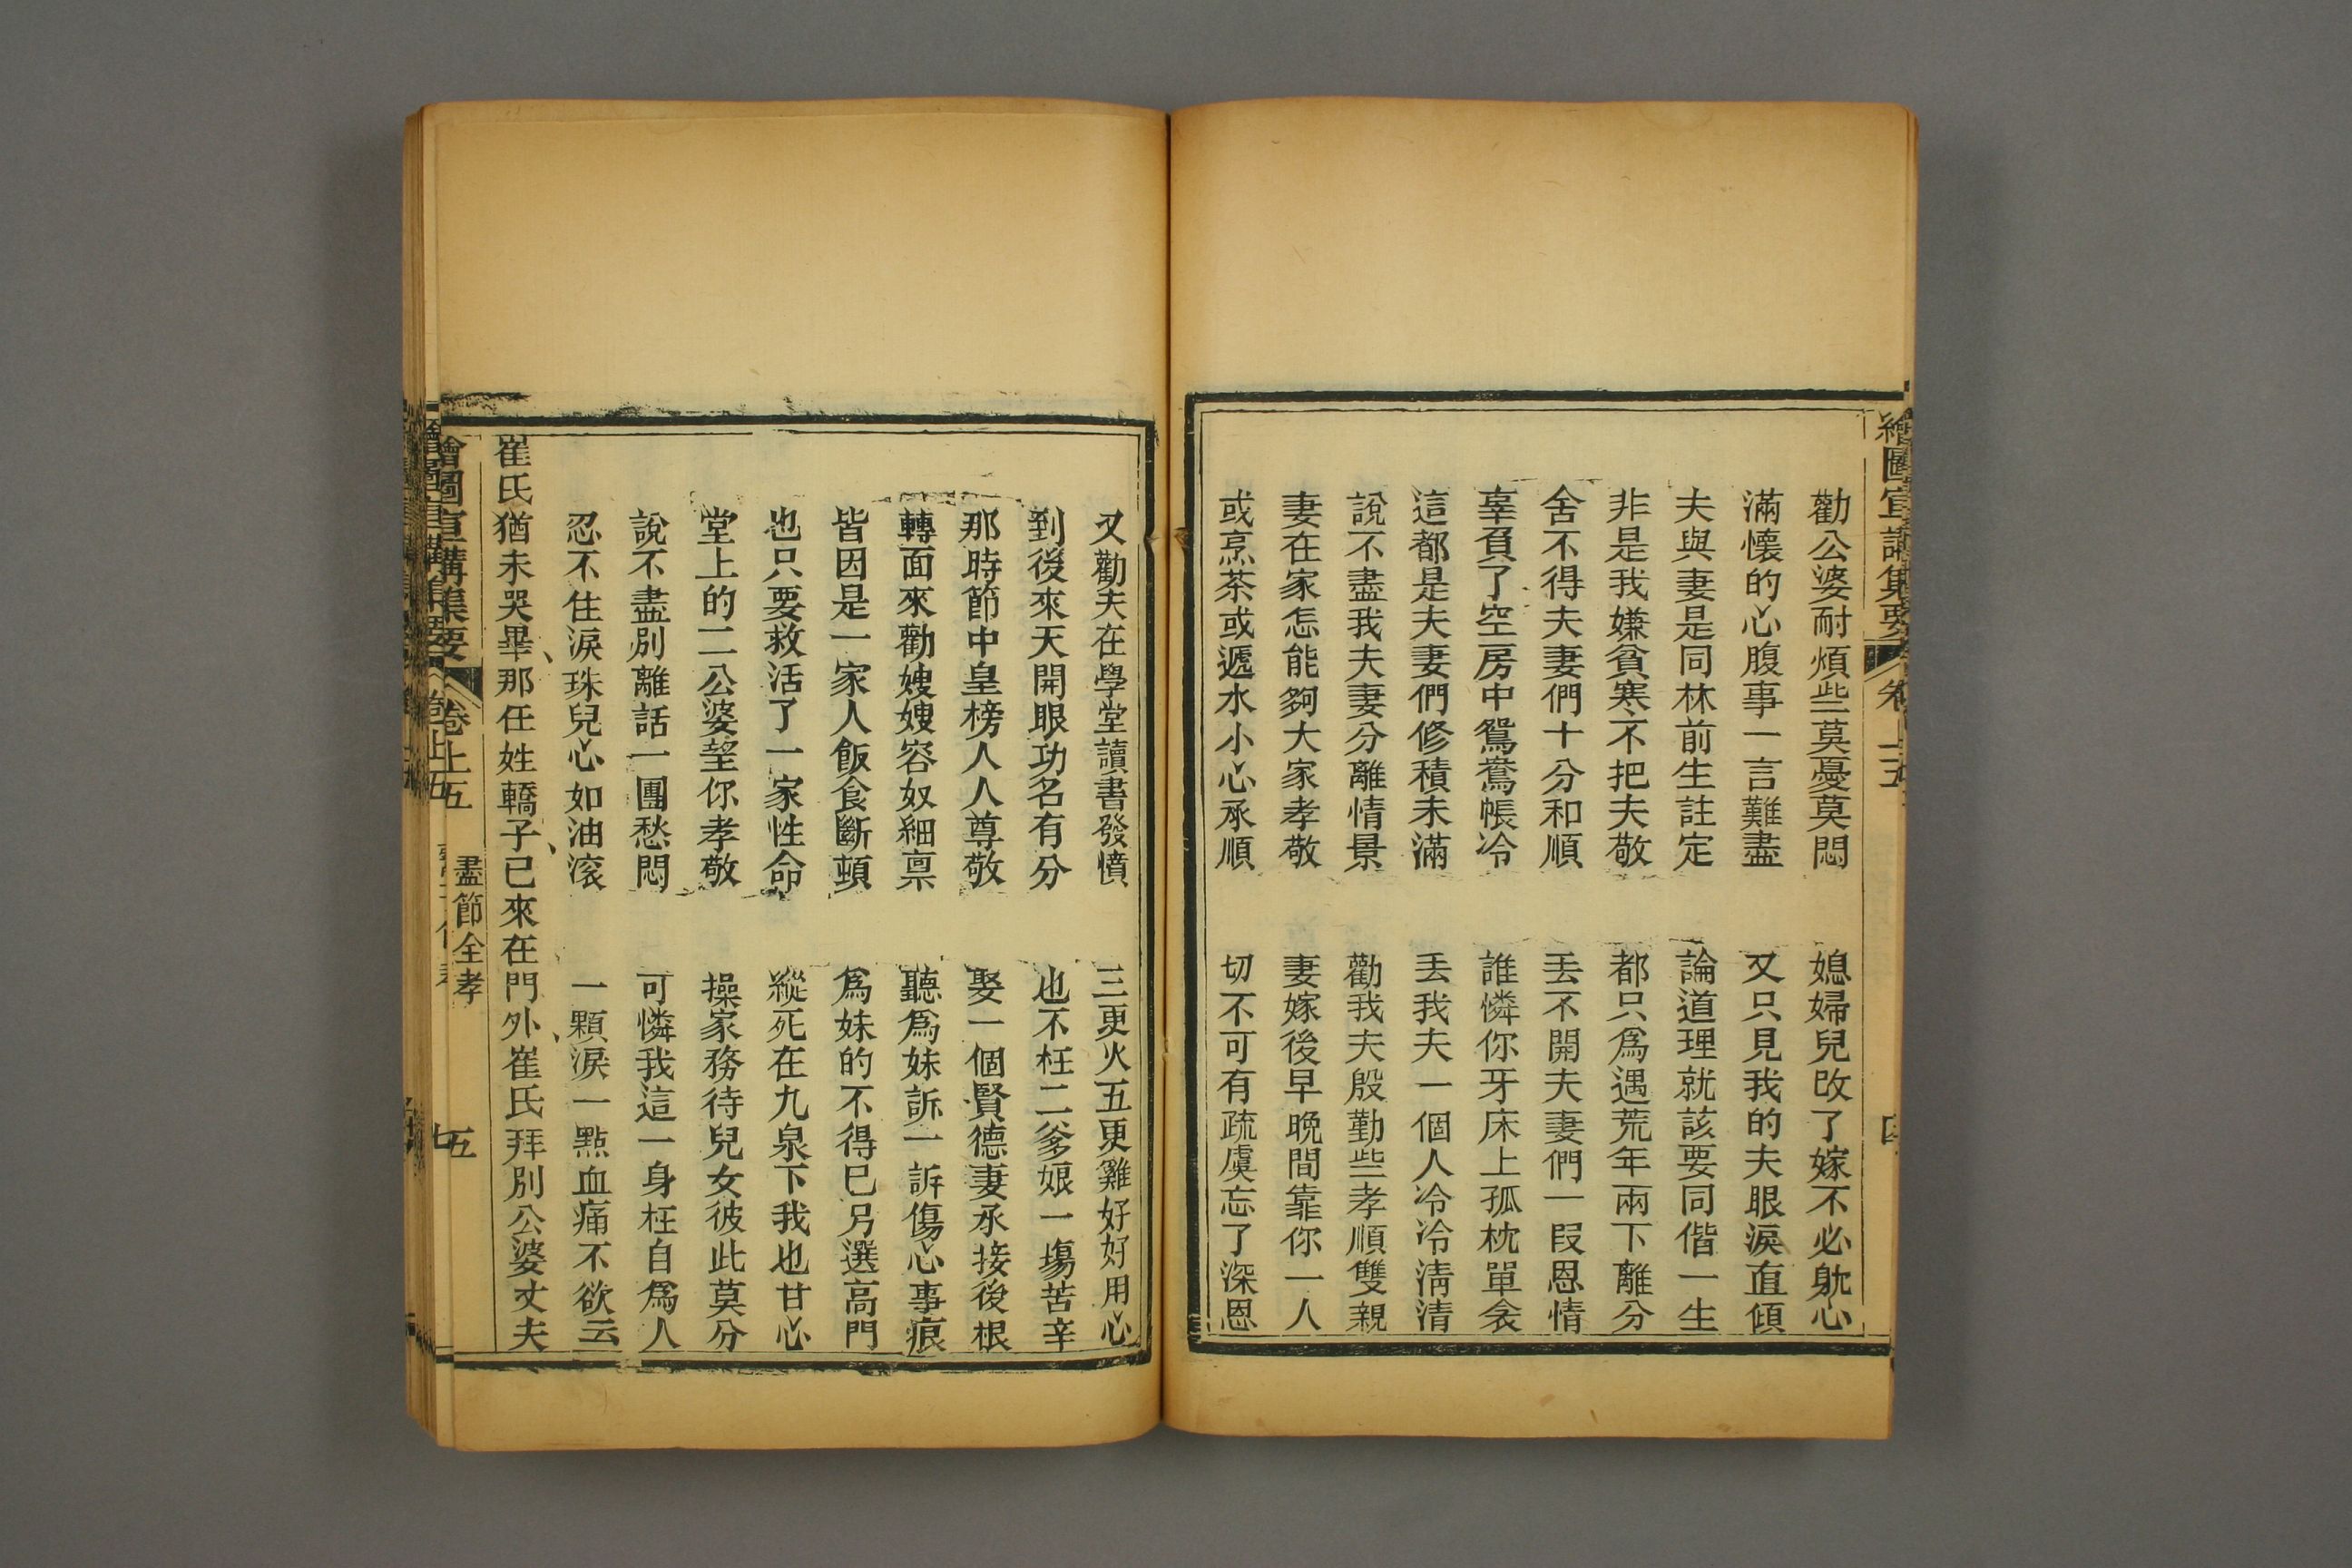 繪圖宣講集要 卷上五
勸公婆耐煩些莫憂莫悶 媳婦兒改了嫁不必躭心
滿懷的心腹事一言難盡 又只見我的夫眼淚直傾
夫與妻是同林前生註定 論道理就該要同偕一生
非是我嫌貧寒不把夫敬 都只爲遇荒年兩下離分
舍不得夫妻們十分和順 丟不開夫妻們一段恩情
辜負了空房中鴛鴦帳冷 誰憐你牙床上孤枕單衾
這都是夫妻們修積未滿 丟我夫一個人冷冷清清
說不盡我夫妻分離情景 勸我夫殷勤些孝順雙親
妻在家怎能夠大家孝敬 妻嫁後早晚間靠你一人
或烹茶或遞水小心承順 切不可有疏虞忘了深恩
又勸夫在學堂讀書發憤 三更火五更雞好好用心
到後來天開眼功名有分 也不枉二爹娘一塲苦辛
那時節中皇榜人人尊敬 娶一個賢德妻承接後根
轉面來勸嫂嫂容奴細禀 聽爲妹訴一訴傷心事痕
皆因是一家人飯食斷頓 爲妹的不得已另選高門
也只要救活了一家性命 縱死在九泉下我也甘心
堂上的二公婆望你孝敬 操家務待兒女彼此莫分
說不盡別離話一團愁悶 可憐我這一身枉自爲人
忍不住淚珠兒心如油滾 一顆淚一點血痛不欲云
崔氏猶未哭畢、那任姓轎子、已來在門外、崔氏拜別公婆丈夫
繪圖宣講集要 卷上五 盡節全孝 五